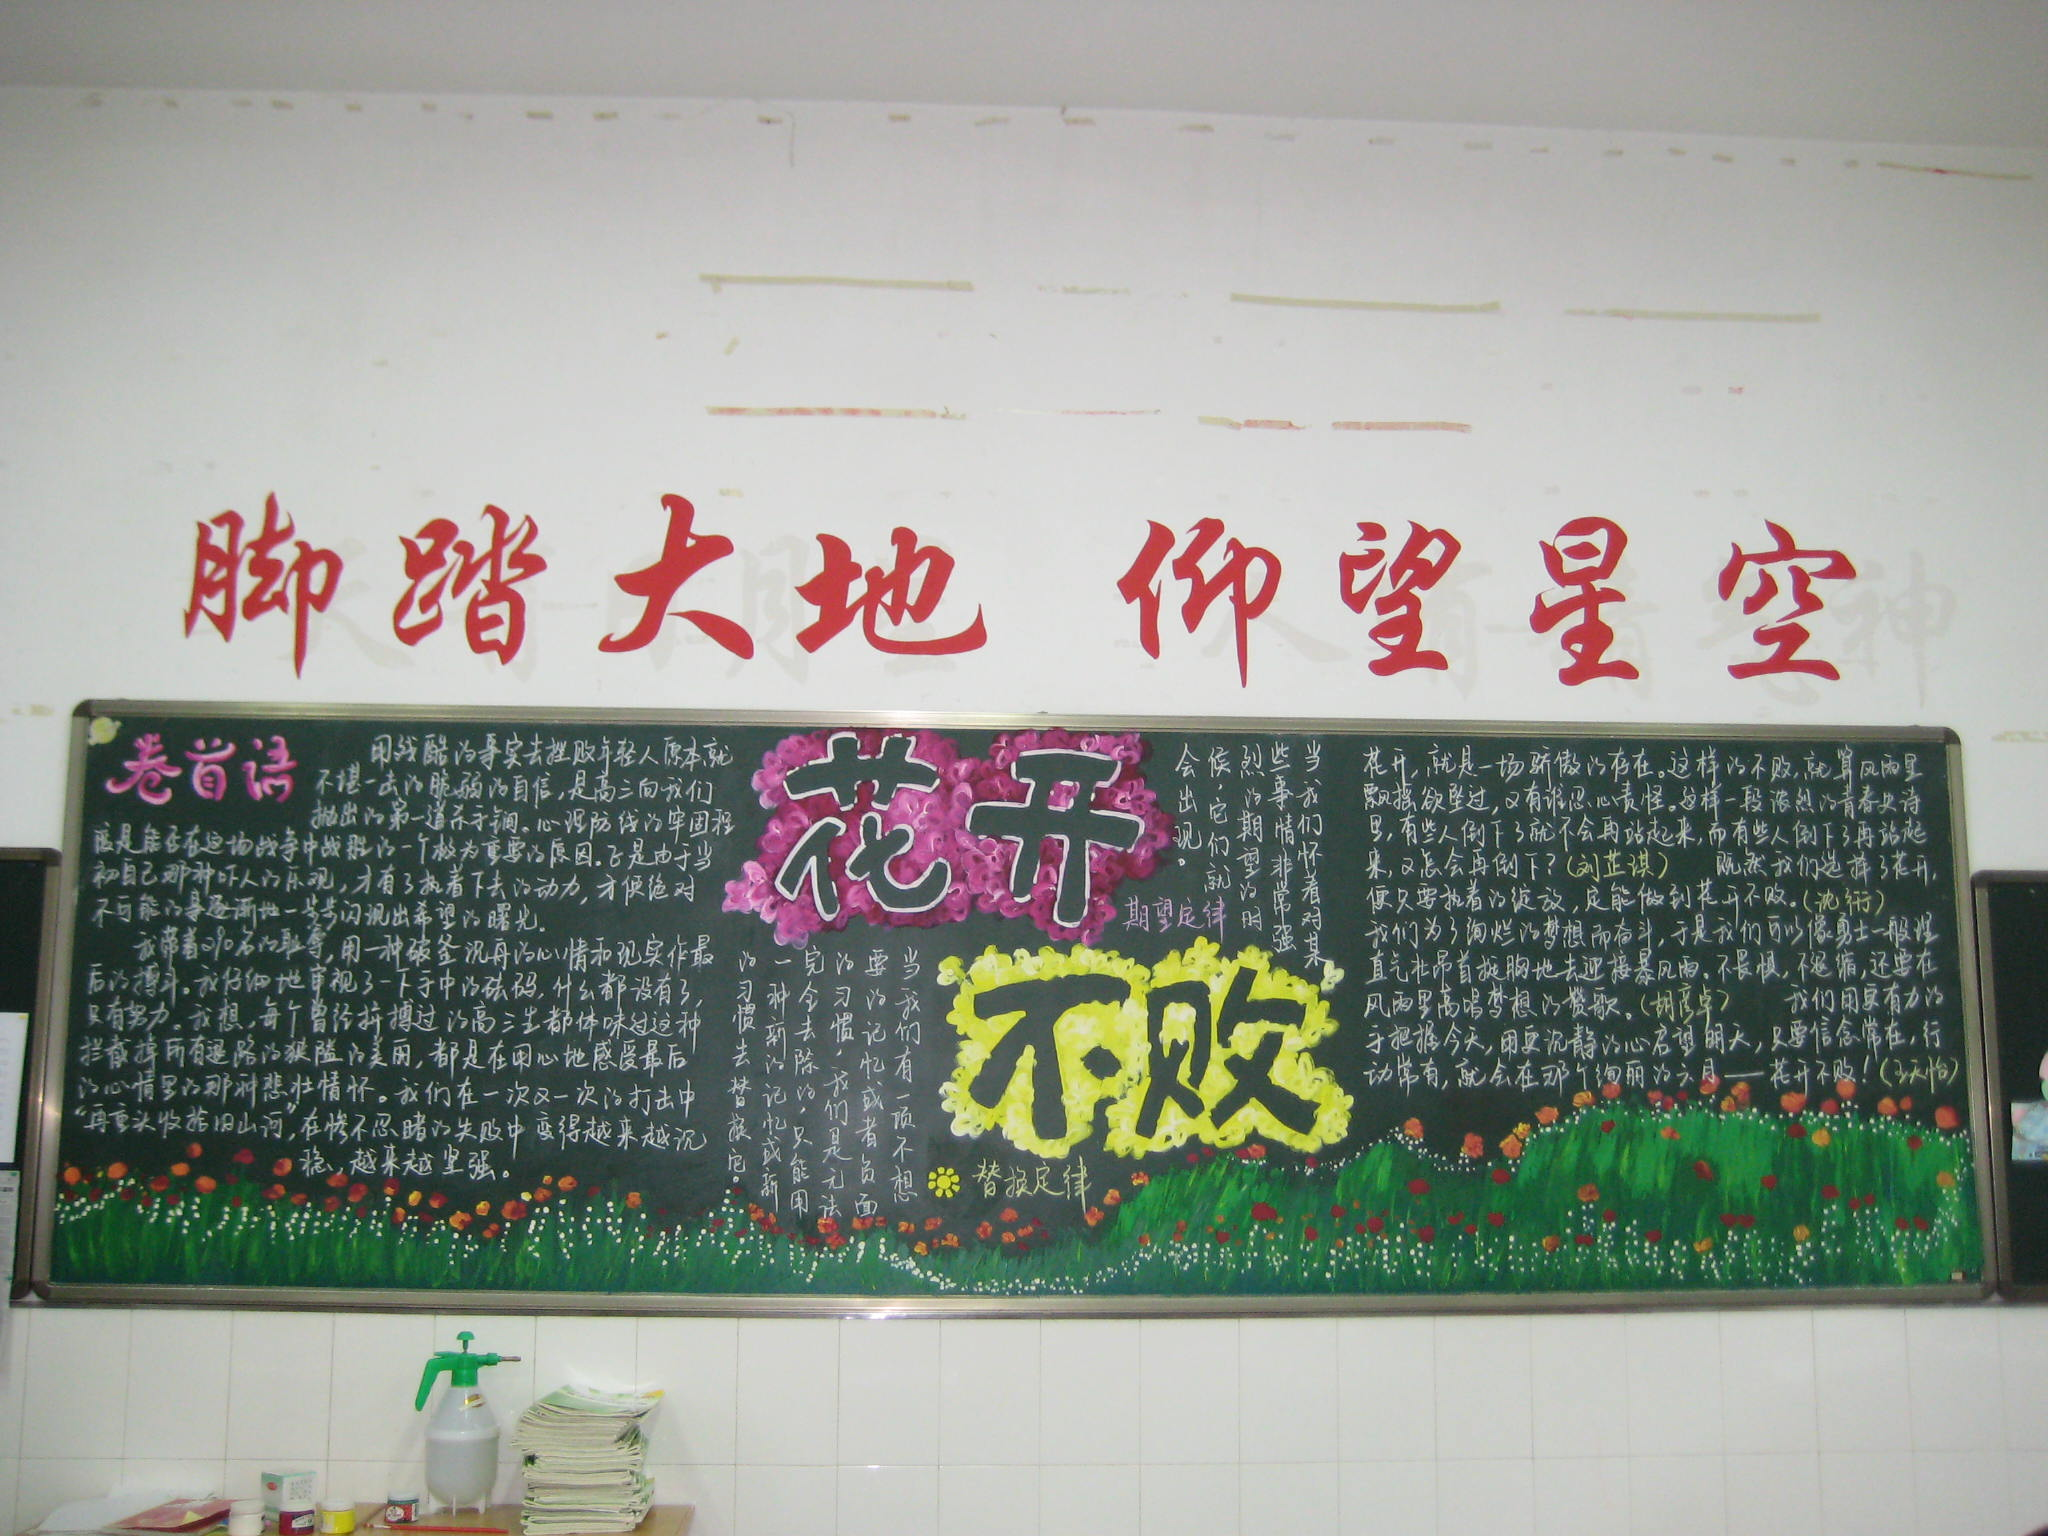 脚踏大地 仰望星空
卷首语
用残酷的事实去挫败年轻人原本就
不堪一击的脆弱的自信,是高三向我们
抛出的第一道杀手锏。心理防线的牢固程
度是能否在这场战争中战胜的一个极为重要的原因。正是由于当
初自己那种吓人的乐观,才有了执着下去的动力,才使绝对
不可能的事逐渐地一步步闪现出希望的曙光。
我带着290名的耻辱,用一种破釜沉舟的心情和现实作最
后的搏斗。我仔细地审视了一下手中的砝码,什么都没有了,
只有努力。我想,每个曾经拼搏过的高三生都体味过这种
拦截掉所有退路的狭隘的美丽,都是在用心地感受最后
的心情里的那种悲壮情怀。我们在一次又一次的打击中
“再重头收拾旧山河”,在惨不忍睹的失败中变得越来越沉
稳,越来越坚强。
花开
不败
当我们怀着对某
些事情非常强
烈的期望的时
候,它们就
会出现。
期望定律
当我们有一项不想
要的记忆或者负面
的习惯,我们是无法
完全去除的,只能用
一种新的记忆或新
的习惯去替换它。
替换定律
花开,就是一场骄傲的存在。这样的不败,就算风雨里
飘摇欲坠过,又有谁忍心责怪。这样一段浓烈的青春史诗
里,有些人倒下了就不会再站起来,而有些人倒下了再站起
来,又怎会再倒下?(刘芷淇) 既然我们选择了花开,
便只要执着的绽放,定能做到花开不败。(沈行)
我们为了绚烂的梦想而奋斗,于是我们可以像勇士一般理
直气壮昂首挺胸地去迎接暴风雨。不畏惧,不退缩,还要在
风雨里高唱梦想的赞歌。(胡彦卓) 我们用更有力的
手把握今天,用更沉静的心启望明天,只要信念常在,行
动常有,就会在那个绚丽的六月——花开不败!(王天怡)